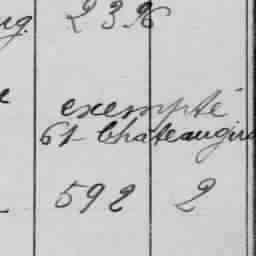 ug. 2396
exempté
61 Chateaugiro
592 2